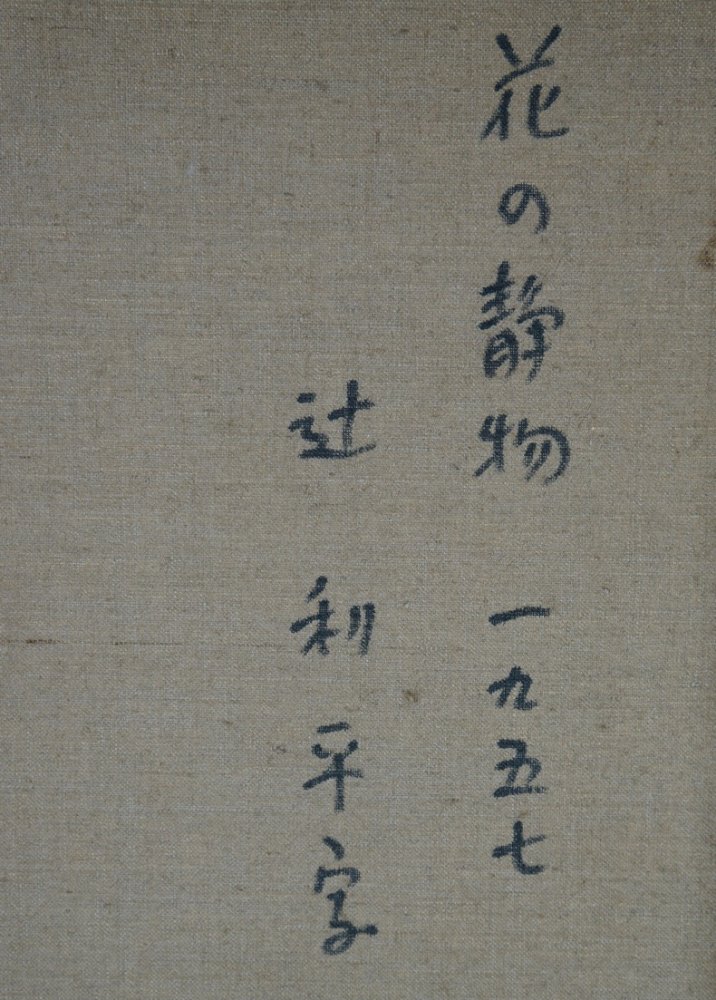 花の静物 一九五七
辻 利平